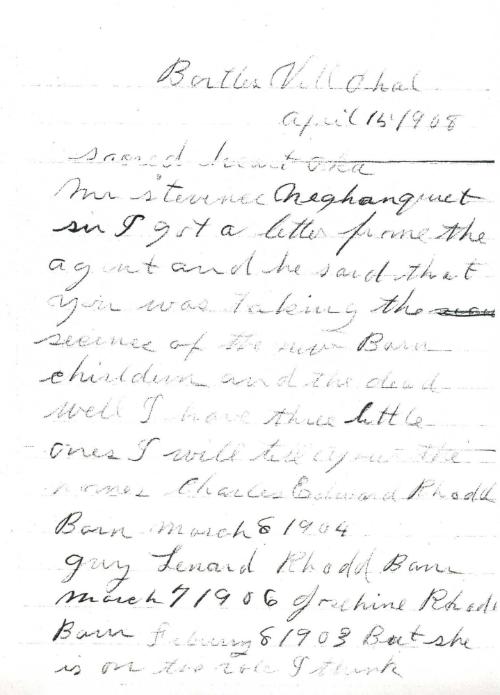 Bartles Vill Okal
April 15 1908
sacred heart Okla
Mr Stevenec Neghanquet
sir I got a letter frome the
agent and he said that
you was taking the
secince of the new Born
childern and the dead
well I have three little
ones I will tell you the
names Charles Edward Rhodd
Born march 8 1904
guy Lenard Rhodd Born
march 7 1906 Josehine Rhodd
Born Febury 8 1903 But she
is on the role I think